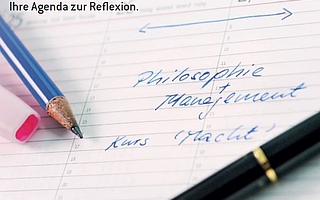 Ihre Agenda zur Reflexion.
Philosophie
+
Management
Kurs 'Macht'